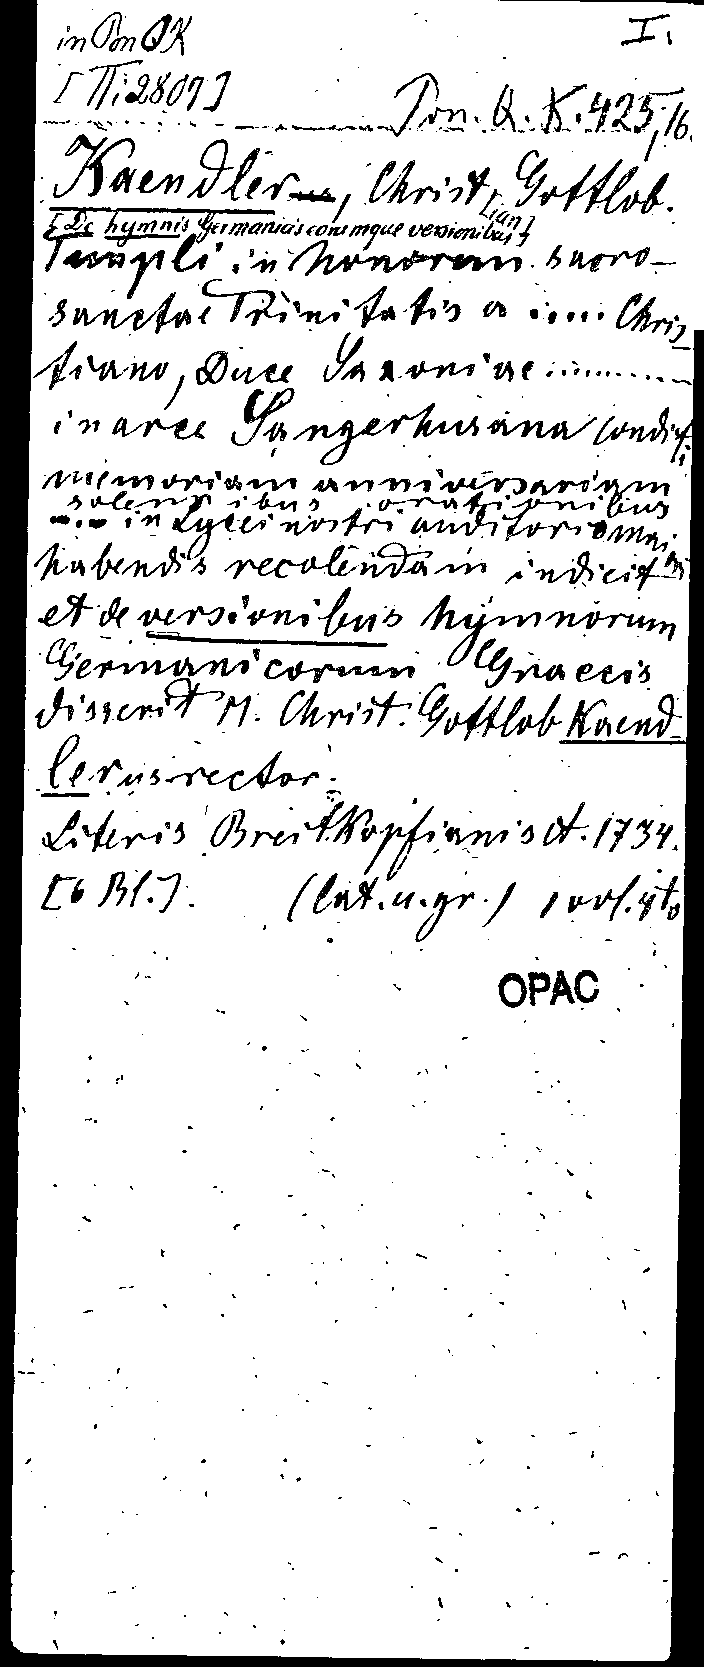 in Pon QK
I.
[Π: 2807]
Pon. Q. K. 425, 16.
Kaendlerus, Christ, Gottlob.
ian
[De hymnis Germanicis eorumque versionibus]
Templi in honorem sacro-
sanctae Trinitatis a .... Chris-
tiano, Duce Saxoniae ..........
in arce Sangerhusana conditi
memoriam anniversariam
solennibus orationibus
.... in Lycei nostri auditorio maiori
habendis recolendam indicit
et de versionibus hymnorum
Germanicorum Graecis
disserit M. Christ. Gottlob Kaend-
lerus rector.
Literis Breitkopfianis A. 1734.
[6 Bl.]. (lat. u. gr.) 1 vol. 4to
OPAC